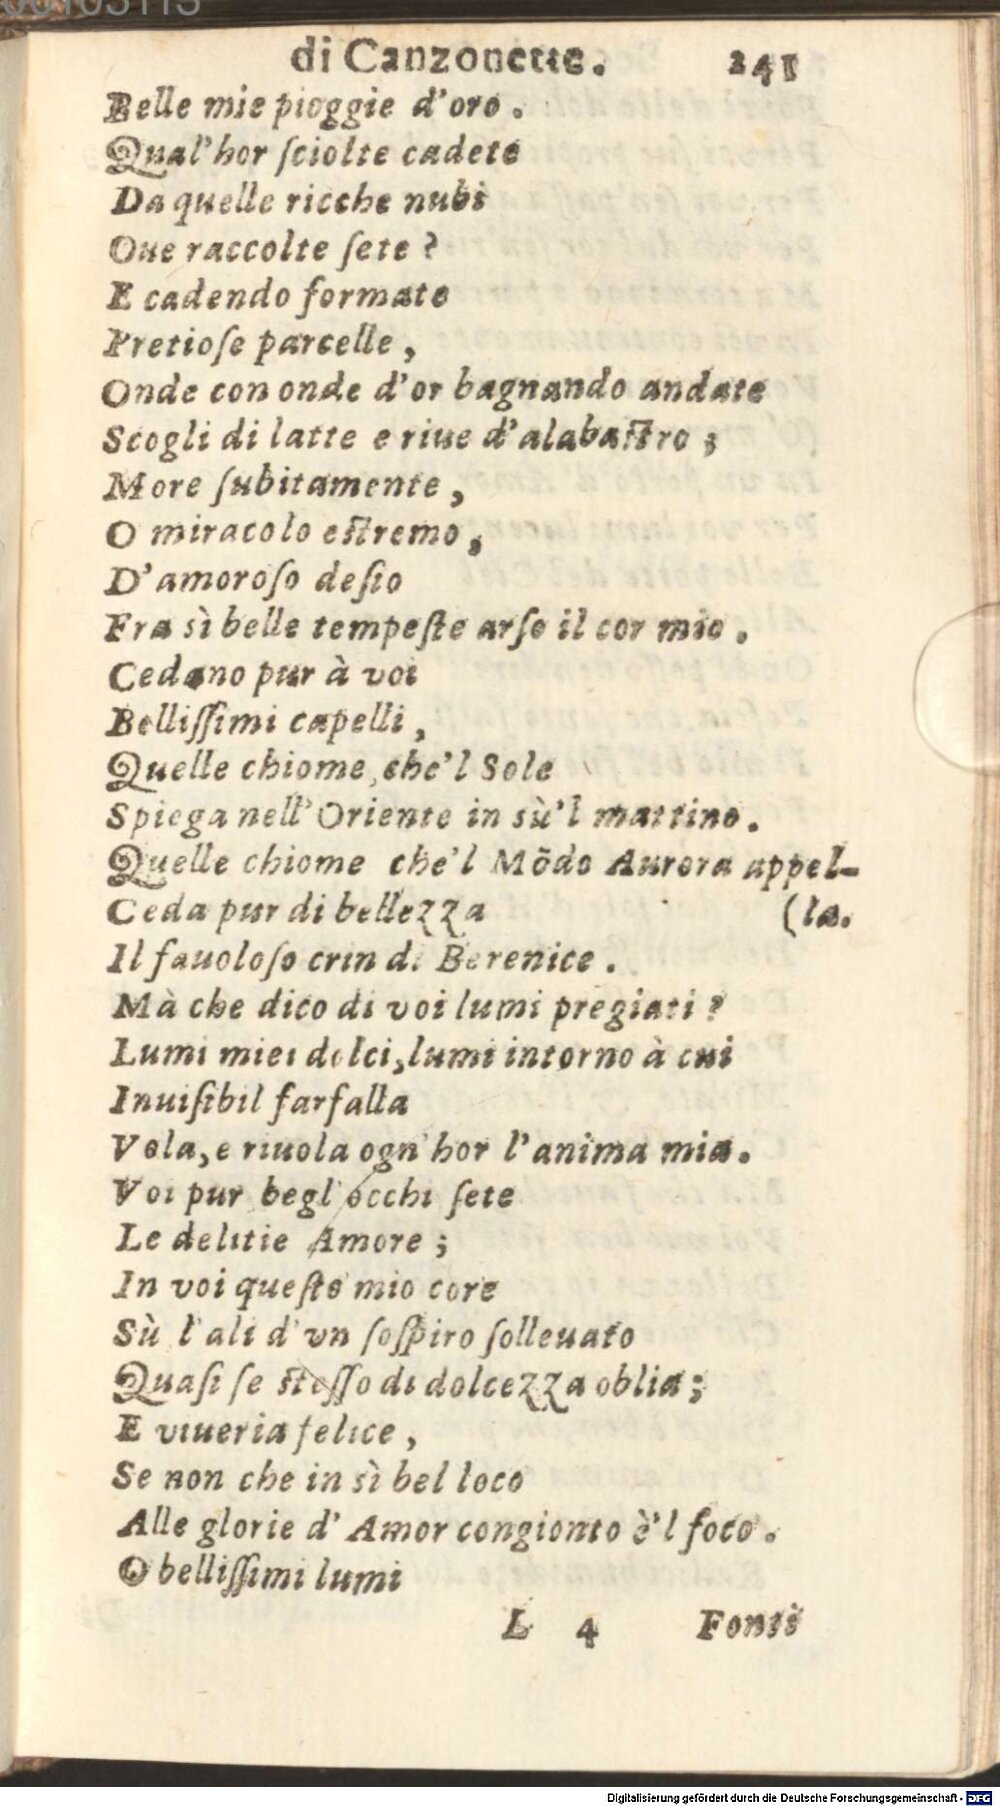 00103113
di Canzonette. 241
Belle mie pioggie d'oro.
Qual'hor ſciolte cadete
Da quelle ricche nubi
Oue raccolte ſete?
E cadendo formate
Pretioſe parcelle,
Onde con onde d'or bagnando andate
Scogli di latte e riue d'alabaſtro;
More ſubitamente,
O miracolo eſtremo,
D'amoroſo deſio
Fra sì belle tempeſte arſo il cor mio.
Cedano pur à voi
Belliſſimi capelli,
Quelle chiome, che'l Sole
Spiega nell'Oriente in sù'l mattino.
Quelle chiome che'l Mōdo Aurora appel-
Ceda pur di bellezza (la.
Il fauoloſo crin di Berenice.
Mà che dico di voi lumi pregiati?
Lumi miei dolci, lumi intorno à cui
Inuiſibil farfalla
Vola, e riuola ogn'hor l'anima mia.
Voi pur begl'occhi ſete
Le delitie Amore;
In voi queſto mio core
Sù l'ali d'vn ſoſpiro ſolleuato
Quaſi ſe ſteſſo di dolcezza oblia;
E viueria felice,
Se non che in sì bel loco
Alle glorie d'Amor congionto è'l foco.
O belliſſimi lumi
L 4 Fonti
Digitalisierung gefördert durch die Deutsche Forschungsgemeinschaft - DFG